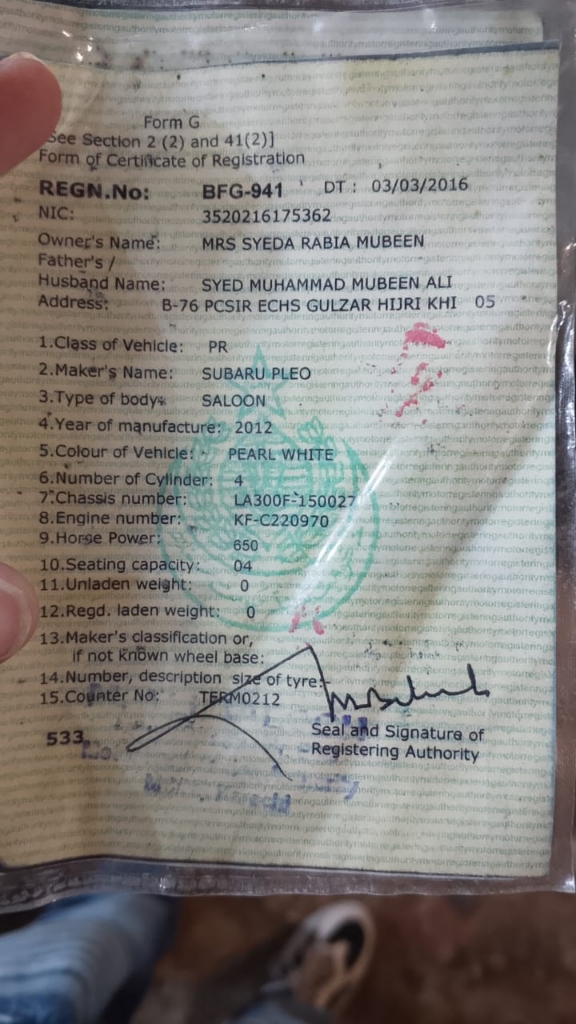 Form G
See Section 2 (2) and 41(2)]
Form of Certificate of Registration
REGN.No: BFG-941 DT : 03/03/2016
NIC: 3520216175362
Owner's Name: MRS SYEDA RABIA MUBEEN
Father's /
Husband Name: SYED MUHAMMAD MUBEEN ALI
Address: B-76 PCSIR ECHS GULZAR HIJRI KHI 05
1.Class of Vehicle: PR
2.Maker's Name: SUBARU PLEO
3.Type of body: SALOON
4.Year of manufacture: 2012
5.Colour of Vehicle: PEARL WHITE
6.Number of Cylinder: 4
7.Chassis number: LA300F-150027
8.Engine number: KF-C220970
9.Horse Power: 650
10.Seating capacity: 04
11.Unladen weight: 0
12.Regd. laden weight: 0
13.Maker's classification or,
if not known wheel base:
14.Number, description size of tyre:
15.Counter No: TERM0212
533
Seal and Signature of
Registering Authority